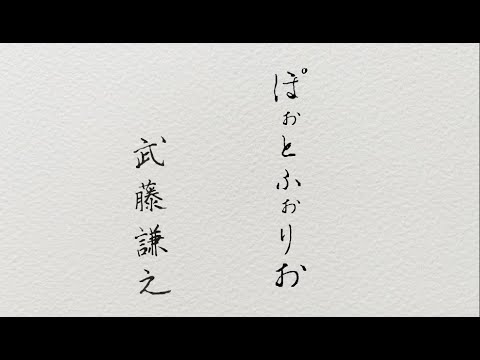 ぽぉとふぉりお
武藤謙之